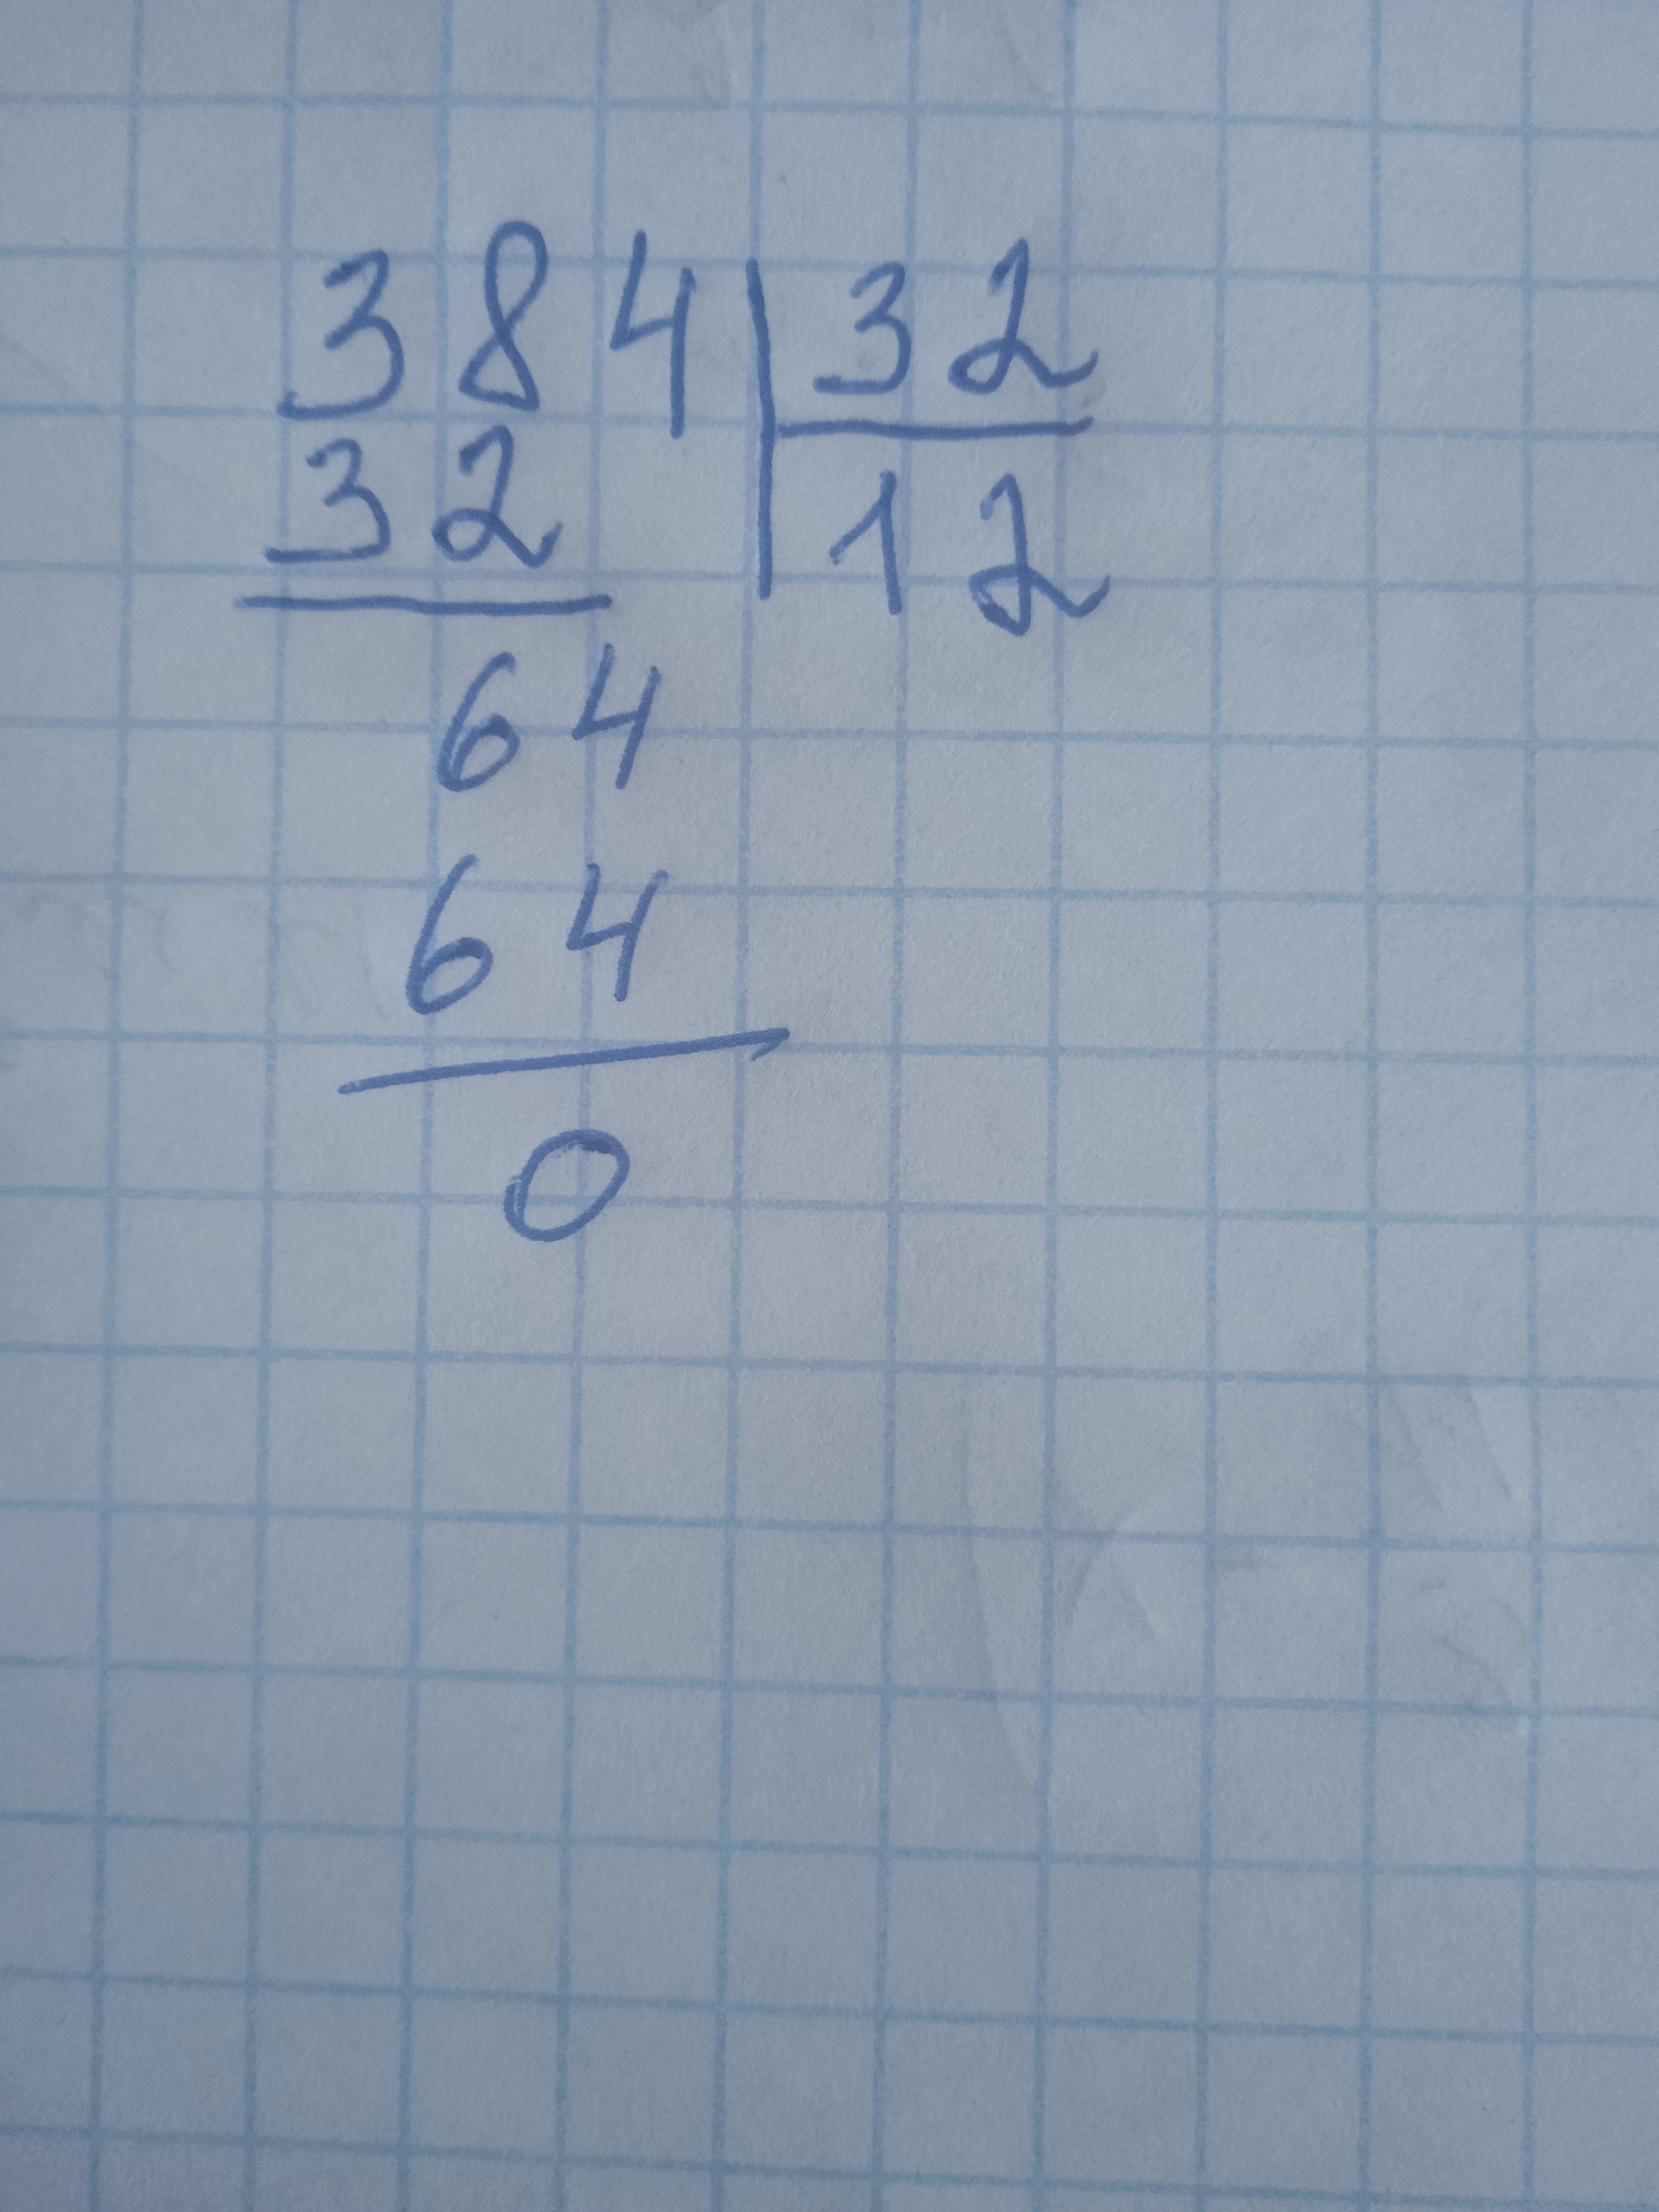 384|32
32 12
64
64
0